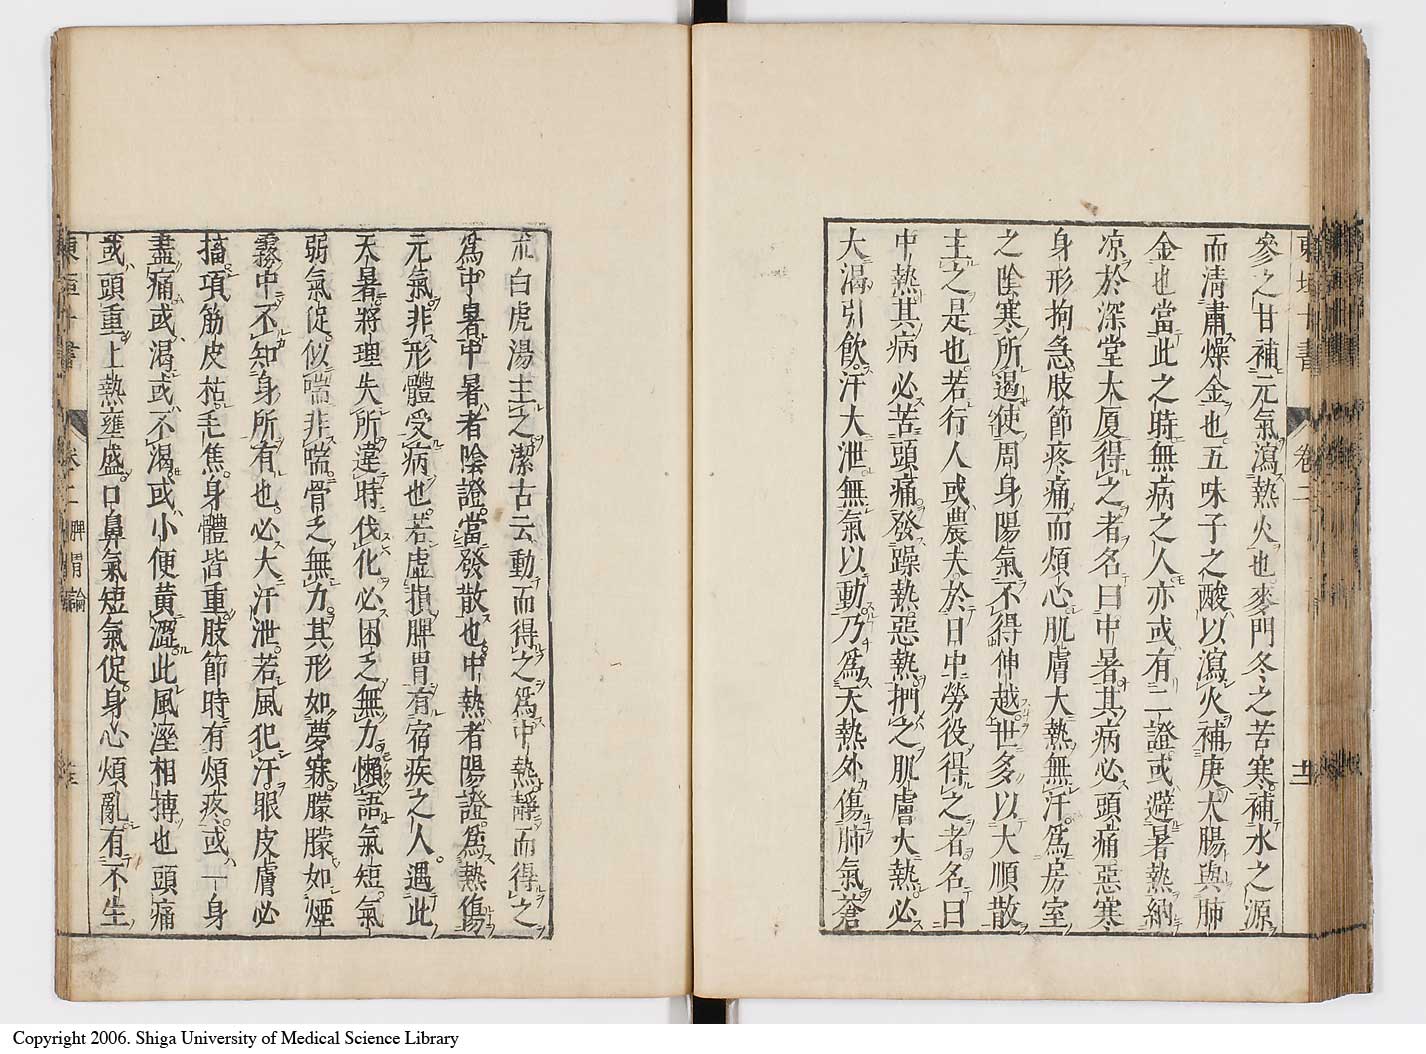 參之甘補元氣瀉熱火也麥門冬之苦寒補水之源
而清肅燥金也五味子之酸以瀉火補庚大腸與肺
金也當此之時無病之人亦或有二證或避暑熱納
凉於深堂大厦得之者名曰中暑其病必頭痛惡寒
身形拘急肢節疼痛而煩心肌膚大熱無汗爲房室
之陰寒所遏使周身陽氣不得伸越世多以大順散
主之是也若行人或農夫於日中勞役得之者名曰
中熱其病必苦頭痛發躁熱惡熱捫之肌膚大熱必
大渴引飮汗大泄無氣以動乃爲天熱外傷肺氣蒼
朮白虎湯主之潔古云動而得之爲中熱靜而得之
爲中暑中暑者陰證當發散也中熱者陽證爲熱傷
元氣非形體受病也若虛損脾胃有宿疾之人遇此
天暑將理失所違時伐化必困乏無力懶語氣短氣
弱氣促似喘非喘骨乏無力其形如夢寐朦朦如煙
霧中不知身所有也必大汗泄若風犯汗眼皮膚必
搐項筋皮枯毛焦身體皆重肢節時有煩疼或一身
盡痛或渴或不渴或小便黃澀此風溼相搏也頭痛
或頭重上熱壅盛口鼻氣短氣促身心煩亂有不生
卷二 脾胃論
Copyright 2006. Shiga University of Medical Science Library